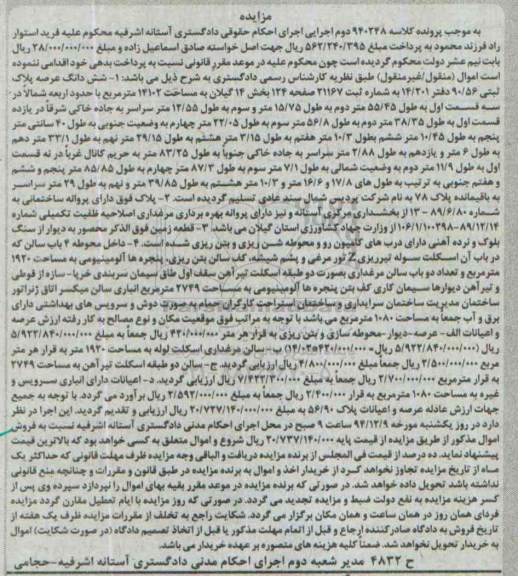 مزایده
به موجب پرونده کلاسه ۹۴۰۲۴۸ دوم اجرایی اجرای احکام حقوقی دادگستری آستانه اشرفیه محکوم علیه فرید استوار
راد فرزند محمود به پرداخت مبلغ ۵۶۲/۲۴۰/۳۹۵ ریال جهت اصل خواسته صادق اسماعیل زاده و مبلغ ۲۸/۰۰۰/۰۰۰ ریال
بابت نیم عشر دولت محکوم گردیده است چون محکوم علیه در موعد مقرر قانونی نسبت به پرداخت بدهی خود اقدامی ننموده
است اموال (منقول/غیرمنقول) طبق نظریه کارشناس رسمی دادگستری به شرح ذیل می باشد: ۱- شش دانگ عرصه پلاک
ثبتی ۵۶/۹۰ دفتر ۱۴/۲۰۱ به شماره ثبت ۲۱۱۶۷ صفحه ۱۲۴ بخش ۱۴ گیلان به مساحت ۱۴۱۰۲ مترمربع با حدود اربعه شمالاً در
سه قسمت اول به طول ۵۵/۴۵ متر دوم به طول ۱۵/۷۵ متر و سوم به طول ۱۲/۵۵ متر سراسر به جاده خاکی شرقاً در یازده
قسمت اول به طول ۳۸/۳۵ متر دوم به طول ۵۶/۸ متر سوم به طول ۲۲/۰۵ متر چهارم به وضعیت جنوبی به طول ۴۰ سانتی متر
پنجم به طول ۱۰/۴۵ متر ششم بطول ۱۰/۳ متر هفتم به طول ۳/۱۵ متر هشتم به طول ۲۹/۱۵ متر نهم به طول ۳۳/۱ متر دهم
به طول ۶ متر و یازدهم به طول ۲/۸۸ متر سراسر به جاده خاکی جنوباً به طول ۸۳/۲۵ متر به حریم کانال غرباً در نه قسمت
اول به طول ۱۱/۹ متر دوم به وضعیت شمالی به طول ۷/۱ متر سوم به طول ۸۷/۳ متر چهارم به طول ۸۵/۸۵ متر پنجم و ششم
و هفتم جنوبی به ترتیب به طول های ۱۷/۸ و ۱۶/۶ متر و ۱۰/۳ متر هشتم به طول ۳۹/۸۵ متر و نهم به طول ۲۹ متر سراسر
به باقیمانده پلاک ۷۸ به نام شرکت پردیس شمال سند عادی تسلیم گردیده است. ۲- پلاک فوق دارای پروانه ساختمانی به
شماره ۸۹/۶/۸۰-۱۳ از بخشداری مرکزی آستانه و نیز دارای پروانه بهره برداری مرغداری اصلاحیه ظرفیت تکمیلی شماره
۱۰۶/۱۰۰۲۹۸-۸۹/۱۲/۱۴ از وزارت جهاد کشاورزی استان گیلان می باشد. ۳- قطعه زمین فوق الذکر محصور به دیوار از سنگ
بلوک و نرده آهنی دارای درب های کامیون رو و محوطه شن ریزی و بتن ریزی شده است. ۴- داخل محوطه ۴ باب سالن که
در باب آن اسکلت سوله تیرریزی Z تور مرغی و پشم شیشه، کف سالن بتن ریزی، پنجره ها آلومینیومی به مساحت ۱۹۲۰
مترمربع و تعداد دو باب سالن مرغداری بصورت دو طبقه اسکلت تیرآهن سقف اول طاق سیمان سربندی خرپا- سازه از قوطی
و تیرآهن دیوارها سیمان کاری کف بتن پنجره ها آلومینیومی به مساحت ۲۷۴۹ مترمربع انباری سالن میکسر اتاق ژنراتور
ساختمان مدیریت ساختمان سرایداری و ساختمان استراحت کارگران حمام به صورت دوش و سرویس های بهداشتی دارای
برق و آب جمعاً به مساحت ۱۰۸۰ مترمربع می باشد با توجه به مراتب فوق موقعیت مکان و نوع مصالح به کار رفته ارزش عرصه
و اعیانات الف- عرصه-دیوار-محوطه سازی و بتن ریزی به قرار هر متر ۴۲۰/۰۰۰ ریال جمعاً به مبلغ ۵/۹۲۲/۸۴۰/۰۰۰
ریال (۵/۹۲۲/۸۴۰/۰۰۰ ریال= ۴۲۰/۰۰۰×۱۴۰۲) ب- سالن مرغداری اسکلت لوله به مساحت ۱۹۲۰ متر به قرار هر متر
مربع ۲/۵۰۰/۰۰۰ ریال جمعاً مبلغ ۴/۸۰۰/۰۰۰/۰۰۰ ریال ارزیابی گردید. ج- سالن دو طبقه اسکلت تیرآهن به مساحت ۲۷۴۹
به قرار مترمربع ۲/۷۰۰/۰۰۰ ریال جمعاً به مبلغ ۷/۴۲۲/۳۰۰/۰۰۰ ریال ارزیابی گردید. د- اعیانات دارای انباری سرویس و
غیره به مساحت ۱۰۸۰ مترمربع به قرار ۲/۴۰۰/۰۰۰ ریال جمعاً به مبلغ ۲/۵۹۲/۰۰۰/۰۰۰ ریال برآورد می گردد. با توجه به جمیع
جهات ارزش عادله عرصه و اعیانات پلاک ۵۶/۹۰ به مبلغ ۲۰/۷۳۷/۱۴۰/۰۰۰ ریال ارزیابی و تقدیم گردید. این اجرا در نظر
دارد در روز یکشنبه مورخه ۹۴/۱۲/۹ ساعت ۹ صبح در محل اجرای احکام مدنی دادگستری آستانه اشرفیه نسبت به فروش
اموال مذکور از طریق مزایده از قیمت پایه ۲۰/۷۳۷/۱۴۰/۰۰۰ ریال شروع و اموال متعلق به کسی خواهد بود که بالاترین قیمت
پیشنهاد نماید. ده درصد از قیمت فی المجلس از برنده مزایده دریافت و الباقی وجه مزایده ظرف مهلت قانونی که حداکثر یک
ماه از تاریخ مزایده تجاوز نخواهد کرد از خریدار اخذ و اموال به برنده مزایده در طبق قانون و مقررات و چنانچه منع قانونی
نداشته باشد تحویل داده خواهد شد. در صورتی که برنده مزایده در موعد مقرر بقیه بهای اموال را نپردازد سپرده وی پس از
کسر هزینه مزایده به نفع دولت ضبط و مزایده تجدید می گردد. در صورتی که روز مزایده با ایام تعطیل مقارن گردد مزایده
فردای همان روز در همان ساعت و همان مکان برگزار می گردد. شکایت راجع به تخلف از مقررات مزایده ظرف یک هفته از
تاریخ فروش به دادگاه صادرکننده ارجاع و قبل از اتمام مهلت مذکور یا قبل از اتخاذ تصمیم دادگاه (در صورت شکایت) اموال
به خریدار تحویل نخواهد شد. ضمناً کلیه هزینه های متصوره بر عهده خریدار می باشد.
ح ۴۸۳۲ مدیر شعبه دوم اجرای احکام مدنی دادگستری آستانه اشرفیه-حجامی